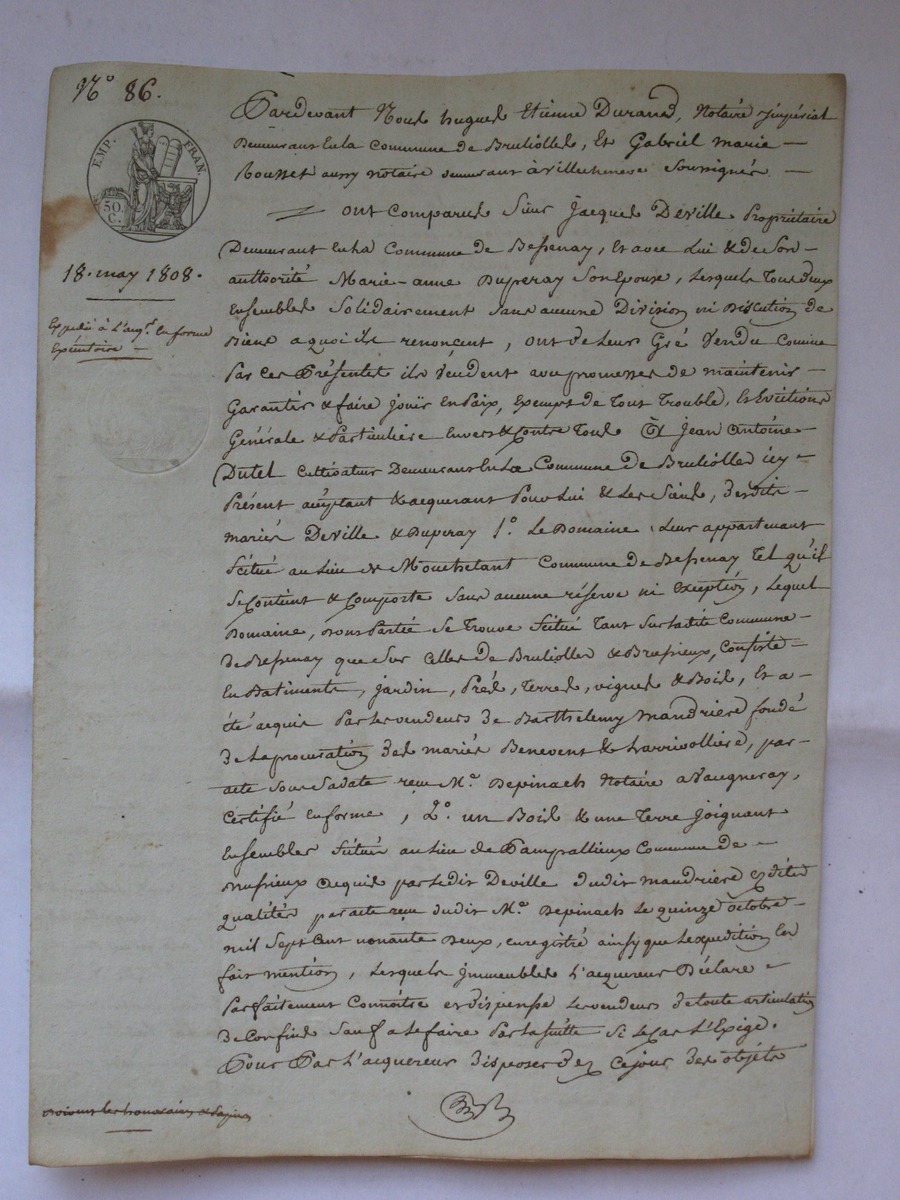 N.° 86.
EMP. FRAN.
50. C.
18. may 1808.
Expédié à l'aq.r en forme
Exécutoire —
Pardevant Nous hugues Etienne Durand, Notaire jmpérial
Demeurant En la Commune de Brulliolles, Et Gabriel Marie —
Rousset aussy notaire demeurant à Villecheneve Soussignés. —
ont Comparus Sieur Jacques Deville Propriétaire
Demeurant En la Commune de Bessenay, Et avec Lui & de Son —
authorité Marie-anne Duperay Son Epouse, Lesquels Tous deux
Ensembles Solidairement Sans aucune Division ni Discution de
Biens a quoi ils renoncent, ont de Leurs Gré Vendu Comme
Par Ces Présentes ils Vendent avec promesses de maintenir —
Garantir & faire Jouir En Paix, Exempt de Tout Trouble, Et Evictions
Générale & Particuliere Envers & Contre Tous À Jean Antoine
Dutel Cultivateur Demeurant En La Commune de Brulliolles icy —
Présent acceptant & acquerant Pour Lui & Les Siens, desdits —
mariés Deville & Duperay 1.° Le Domaine Leur appartenant
Scitué au Lieu de Commune de Bessenay Tel qu'il
Se Contient & Comporte Sans aucune réserve ni Exception, Lequel
Domaine, Se Trouve Scitué Tant Sur ladite Commune —
de Bessenay que Sur Celles de Brulliolles & Brussieux, Consiste —
En Batiments, Jardin, Prés, Terres, vignes & Bois, Et a —
été acquis Par les vendeurs de Barthelemy Mandriere fondé
de la procuration des mariés Benevent & par —
acte Sous Sa date reçu M.e Depinach Notaire a Vaugneray,
Certifié en forme, 2.° un Bois & une Terre Joignant
Ensembles Scitués au Lieu de Commune de —
acquis par ledit Deville dudit Mandriere Esdites
qualités par acte reçu dudit M.e Depinach Le quinze octobre —
mil Sept Cent nonante Deux, enregistré ainsy que L'expedition En
fait mention, Lesquels Jmmeubles L'acquereur Déclare —
Parfaitement Connoitre et dispense Les vendeurs de toute articulation
de Confins Sauf a Le faire Par la Suitte Si le Cas L'Exige.
Pour Par L'acquereur disposer dez Ce jour des objets